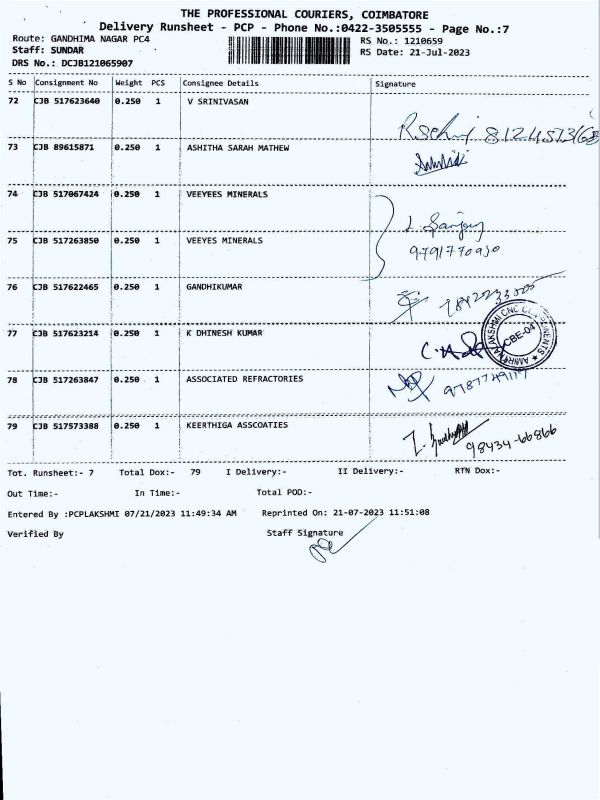 THE PROFESSIONAL COURIERS, COIMBATORE
Delivery Runsheet - PCP - Phone No.:0422-3505555 - Page No.:7
Route: GANDHIMA NAGAR PC4 RS No.: 1210659
Staff: SUNDAR RS Date: 21-Jul-2023
DRS No.: DCJB121065907
S No Consignment No Weight PCS Consignee Details Signature
72 CJB 517623640 0.250 1 V SRINIVASAN
73 CJB 89615871 0.250 1 ASHITHA SARAH MATHEW
74 CJB 517067424 0.250 1 VEEYEES MINERALS
L. Sanjay
75 CJB 517263850 0.250 1 VEEYES MINERALS
9791770930
76 CJB 517622465 0.250 1 GANDHIKUMAR
77 CJB 517623214 0.250 1 K DHINESH KUMAR
CBE-04
78 CJB 517263847 0.250 1 ASSOCIATED REFRACTORIES
79 CJB 517573388 0.250 1 KEERTHIGA ASSCOATIES
98434-66866
Tot. Runsheet:- 7 Total Dox:- 79 I Delivery:- II Delivery:- RTN Dox:-
Out Time:- In Time:- Total POD:-
Entered By :PCPLAKSHMI 07/21/2023 11:49:34 AM Reprinted On: 21-07-2023 11:51:08
Verified By Staff Signature